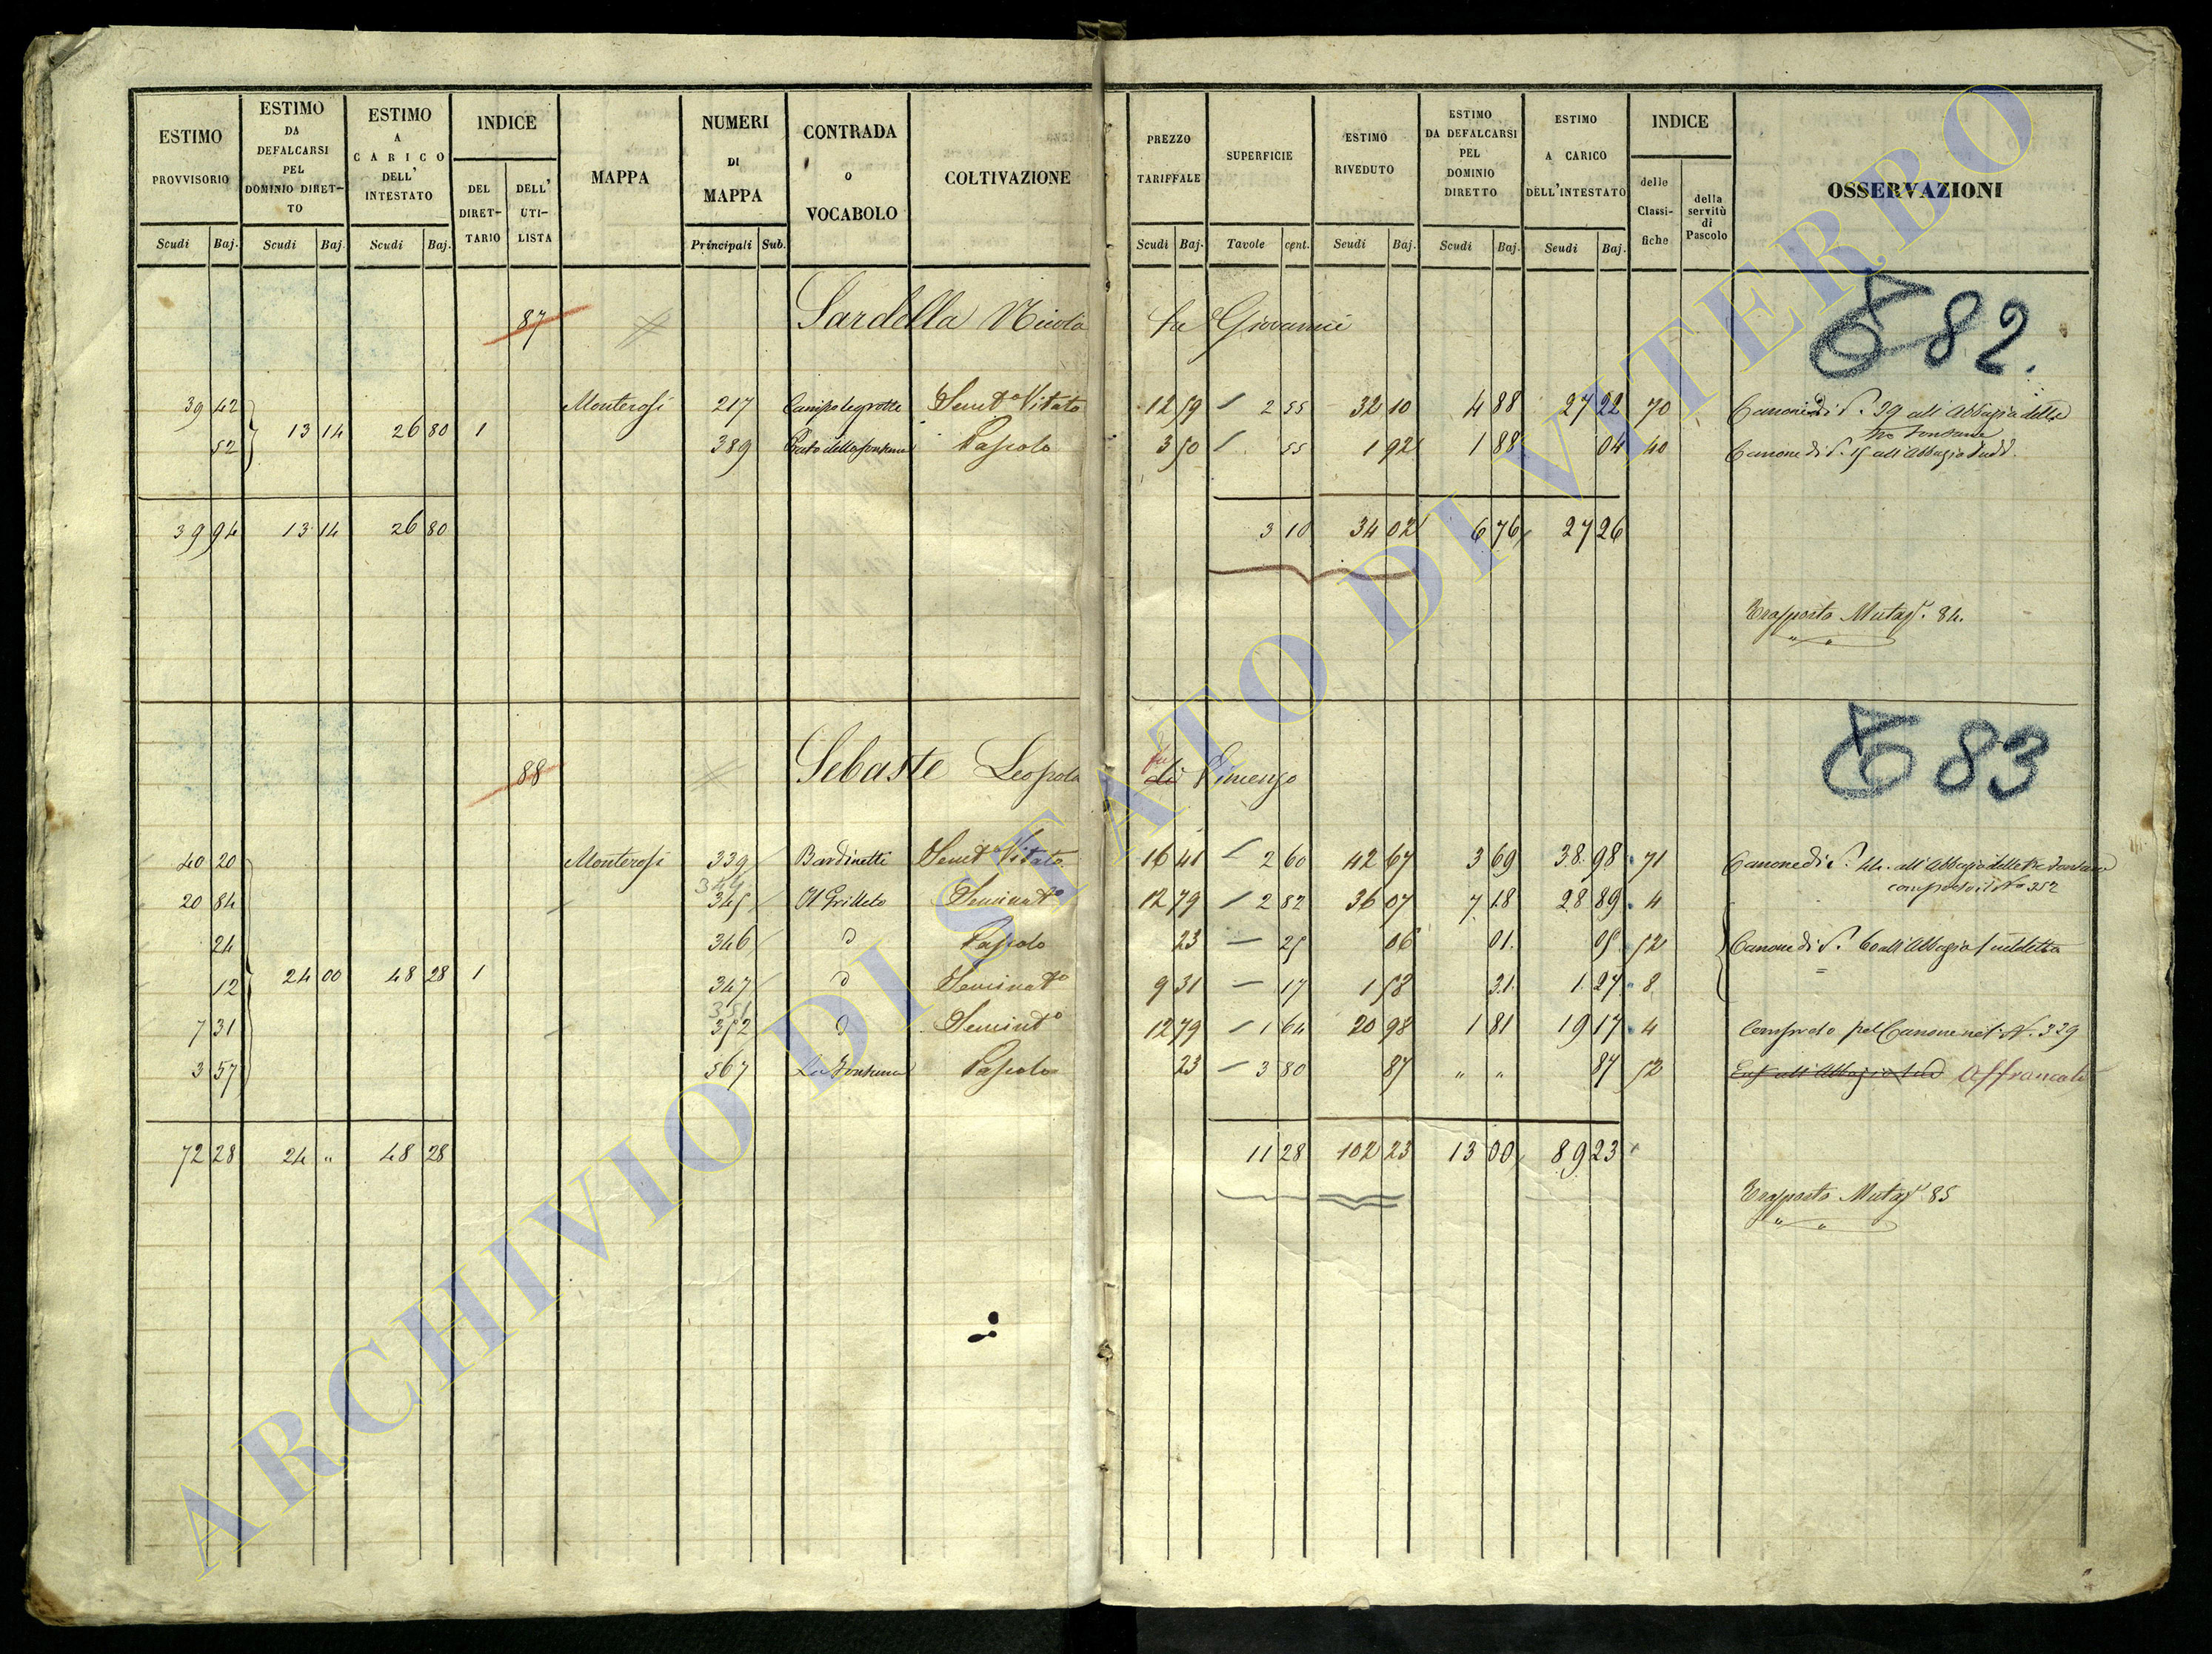 ESTIMO PROVVISORIO | ESTIMO DA DEFALCARSI PEL DOMINIO DIRETTO | ESTIMO A CARICO DELL' INTESTATO | INDICE | MAPPA | NUMERI DI MAPPA | CONTRADA o VOCABOLO | COLTIVAZIONE | PREZZO TARIFFALE | SUPERFICIE | ESTIMO RIVEDUTO | ESTIMO DA DEFALCARSI PEL DOMINIO DIRETTO | ESTIMO A CARICO DELL'INTESTATO | INDICE | OSSERVAZIONI
DEL DIRETTARIO | DELL' UTILISTA | delle Classifiche | della servitù di Pascolo
Scudi | Baj. | Scudi | Baj. | Scudi | Baj. | Principali | Sub. | Scudi | Baj. | Tavole | cent. | Scudi | Baj. | Scudi | Baj. | Scudi | Baj.
87 Sardella Nicola fu Giovanni 82.
39 42 Monterosi 217 Campo le grotte Semt° Vitato 12 59 2 55 32 10 4 88 27 22 70 Canone di S. 39 all'Abbazia delle
Tre Fontane
13 14 26 80 1
52 389 Prato della fontana Pascolo 3 50 55 1 92 1 88 04 40 Canone di S. 15 all'Abbazia Sudd.
39 94 13 14 26 80 3 10 34 02 6 76 27 26
Trasporto Mutaz. 84.
88 Sebaste Leopoldo di Vincenzo 83
fu
40 20 Monterosi 339 Bardinetti Semt° Vitato 16 41 2 60 42 67 3 69 38 98 71 Canone di S. 44 all'Abbazia delle Tre Fontane
compreso il N° 352
344
20 84 345 Il Grilleto Seminat° 12 79 2 82 36 07 7 18 28 89 4
24 346 d Pascolo 23 25 06 01 05 52 Canone di S. 60 all'Abbazia Suddetta
12 24 00 48 28 1 347 d Seminat° 9 31 17 1 58 31 1 27 8
351
7 31 352 d Seminat° 12 79 1 64 20 98 1 81 19 17 4 Compreso pel Canone nel N. 339
3 57 567 La Fontana Pascolo 23 3 80 87 " " 87 52 Enf. all'Abbazia Sud Affrancato
72 28 24 " 48 28 11 28 102 23 13 00 89 23
Trasporto Mutaz. 85
ARCHIVIO DI STATO DI VITERBO